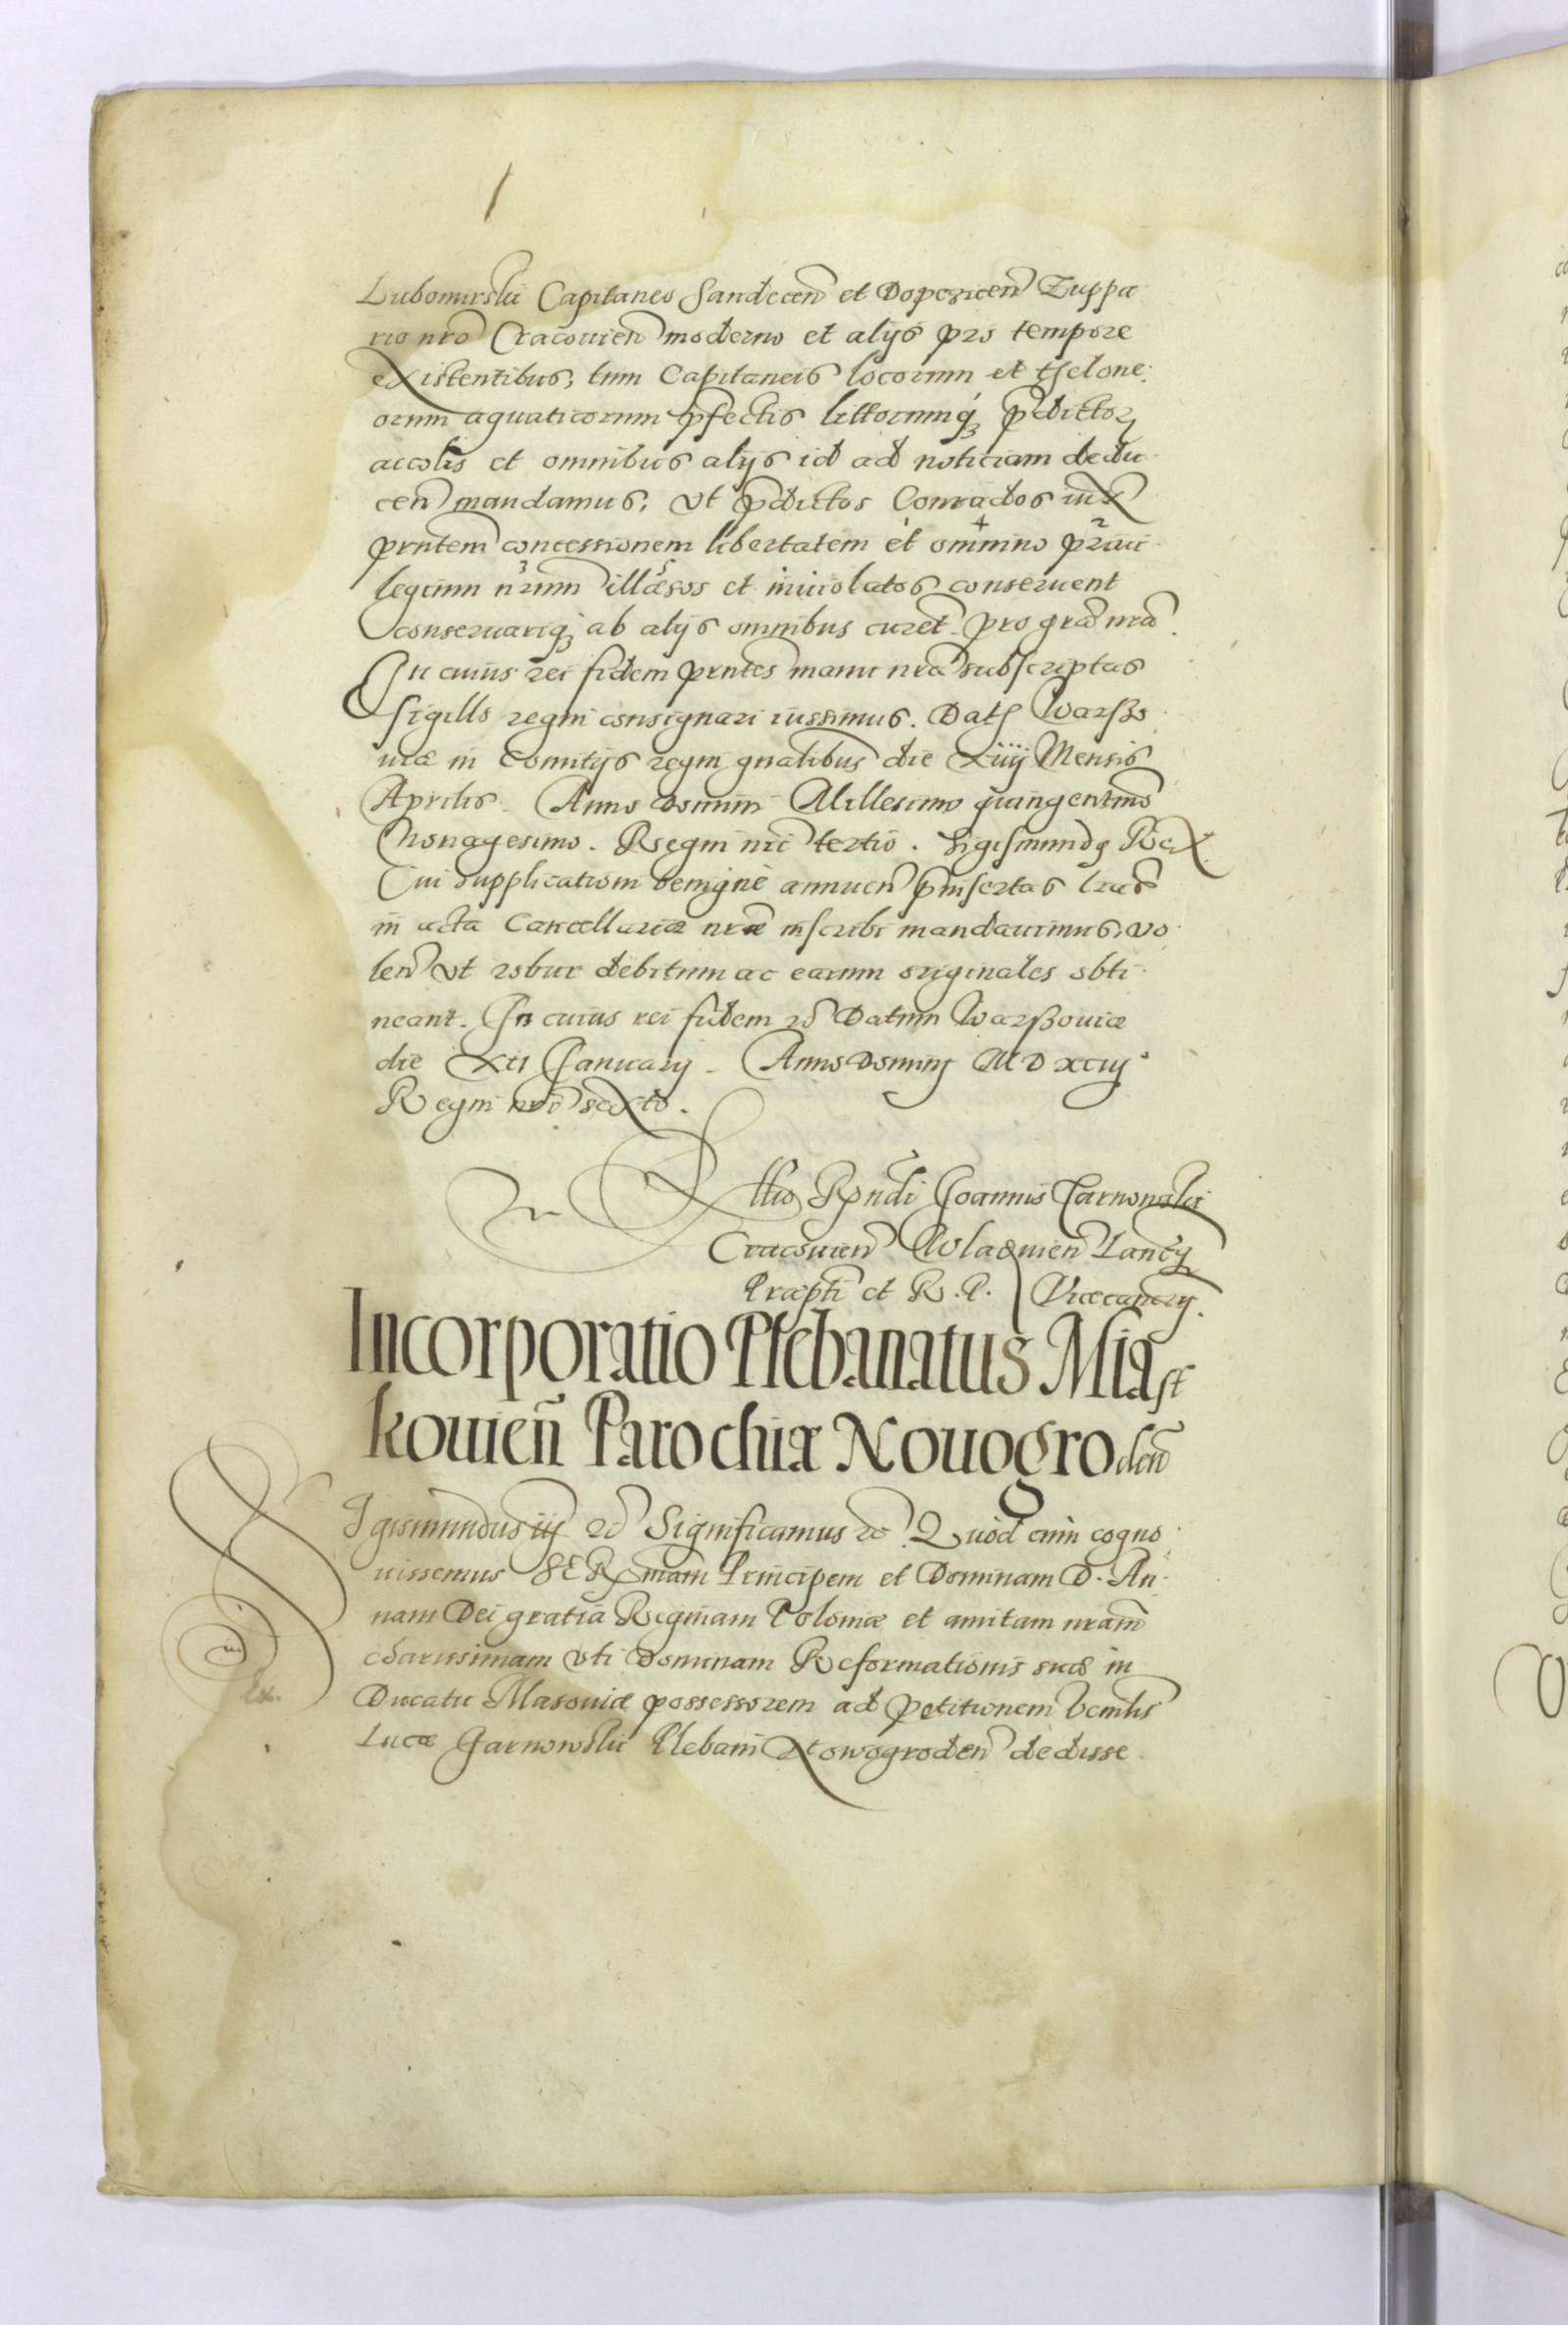 Lubomirskii Capitaneo Sandecen et Dopczicen Zuppa
rio nro Cracouien moderno et alijs pro tempore
existentibus, tum Capitaneis locorum et thelone:
orum aquaticorum pfectis littorumq pdictor
accolis et omnibus alijs id ad noticiam dedu
cen mandamus, vt pdictos Conrados iux
prntem concessionem libertatem et omnino priui
legium nrum illæsos et inuiolatos conseruent
conseruariq ab alijs omnibus curet pro gra nra
In cuius rei fidem prntes manu nra subscriptas
sigillo regni consignari iussimus. Dat Warsso
uiæ in Comitijs regni gnalibus die Xiiij Mensis
Aprilis. Anno Domini Millesimo quingentmo
Nonagesimo. Regni nri tertio. Sigismundq Rex
Cui supplicationi benigne annuen pinsertas lras
in acta Cancellariæ nræ inscribi mandauimus, vo
len vt robur debitum ac earum originales obti
neant. In cuius rei fidem ec Datum Warssouiæ
die Xii January. Anno Domini M D XCiij
Regni nri sexto.
Rllio Rpndi Joannis Tarnowskii
Cracouien Wladouien Lancy
Præpti et R. P. Vicecancry.
Incorporatio Plebanatus Miast
kouien Parochiæ Nouogroden
Sigismundus iij ec Significamus ec Quod cum cogno
uissemus SERmam Principem et Dominam D. An
nam Dei gratia Reginam Poloniæ et amitam nram
charissimam vti Dominam Reformationis suæ in
Ducatu Masouiæ possessorem ad petitionem venlis
Lucæ Garnowskii Plebani Nowogroden dedisse